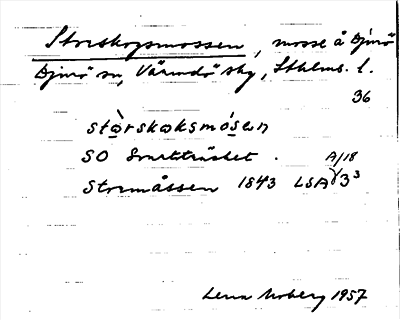 Storskogsmossen, mosse å Djurö
Djurö sn, Värmdö skg, Sthlms. l.
36
stòrskoksmósen
SO Svartträsket.
A/18
Stormåssen 1843 LSA γ3³
Lena Moberg 1957